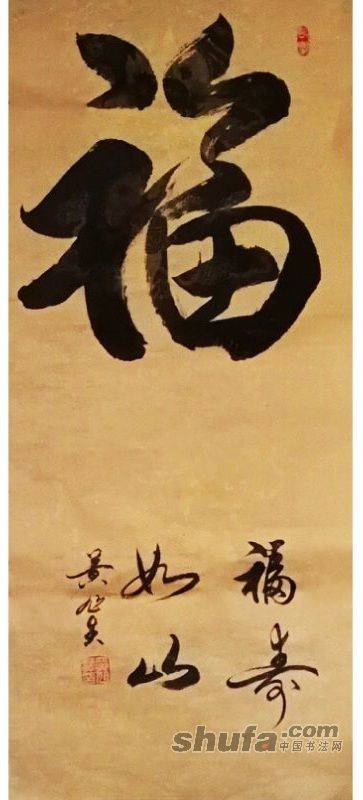 福
福寿
如山
shufa.com
中国书法网